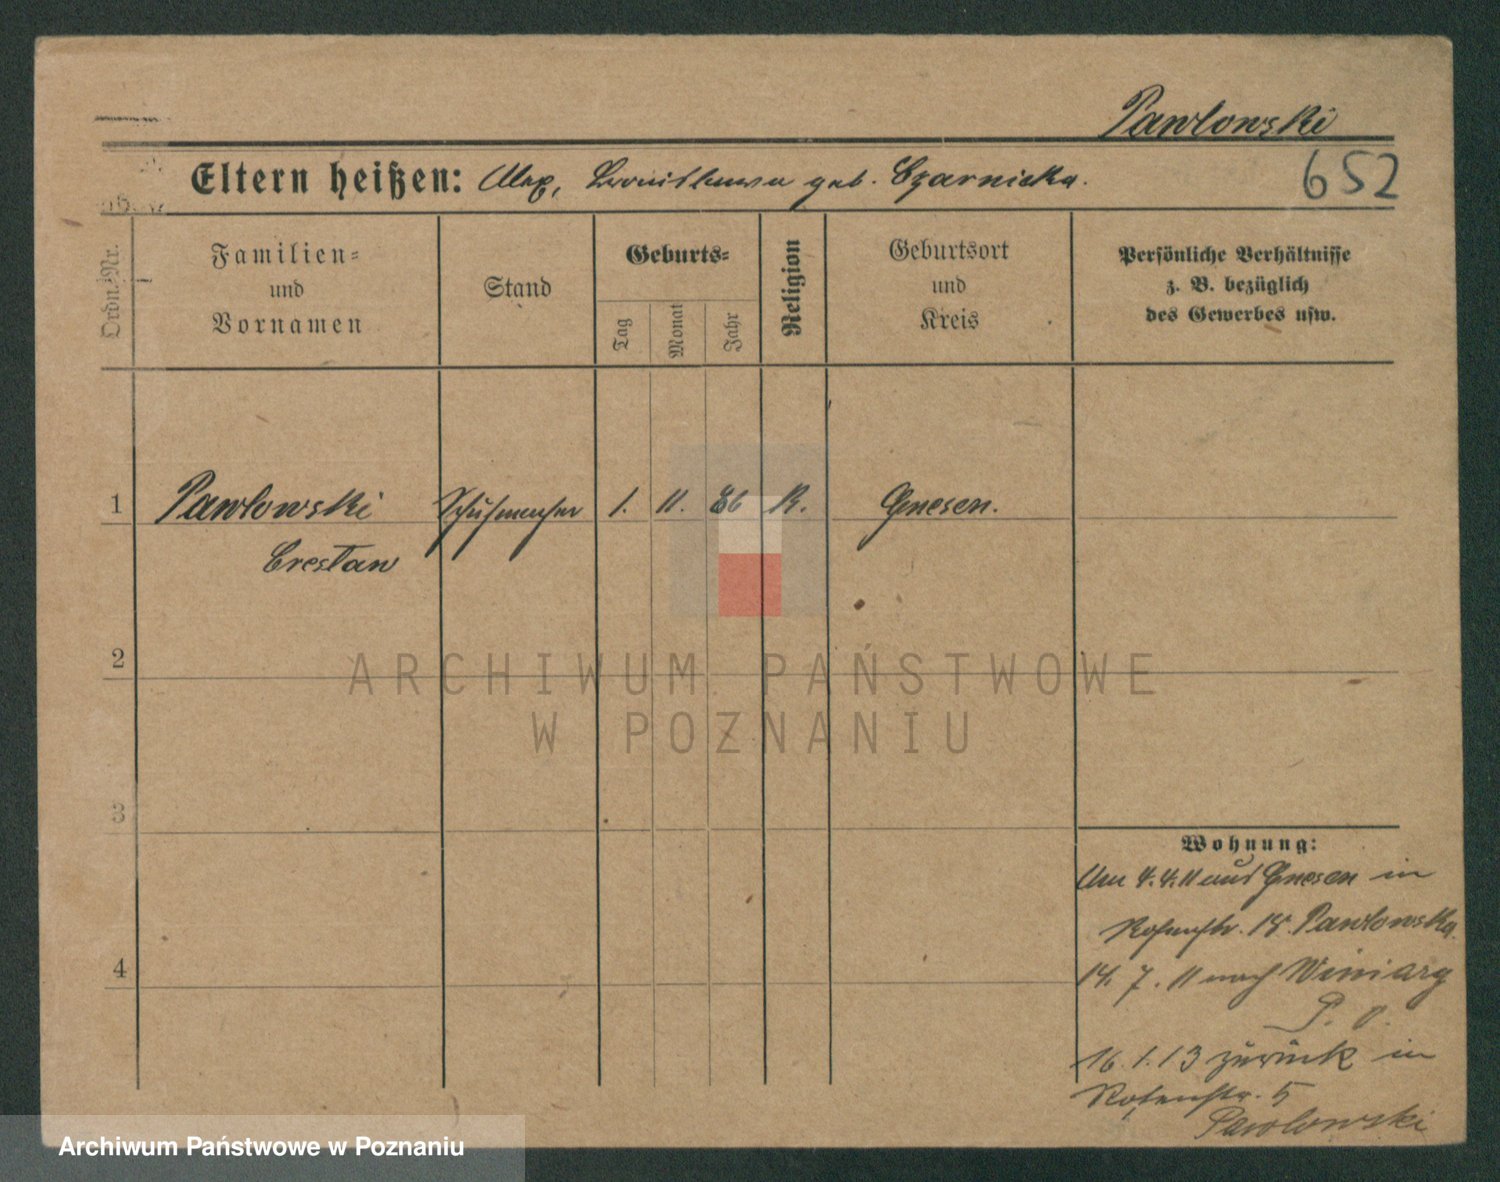 Pawlowski
Eltern heißen: Alex, Bronislawa geb. Czarnicka.
652
Ordn.-Nr.
Familien-
und
Vornamen
Stand
Geburts-
Tag
Monat
Jahr
Religion
Geburtsort
und
Kreis
Persönliche Verhältnisse
z. B. bezüglich
des Gewerbes usw.
1 Pawlowski Schuhmacher 1. 11. 86 K. Gnesen.
Crestan
2
3
4
Wohnung:
Am 4.4.11 aus Gnesen in
Rosenstr. 15. Pawlowska.
14. 7. 11 nach Winiary
16.1.13 zurück in
Rosenstr. 5
Pawlowski
ARCHIWUM PAŃSTWOWE
W POZNANIU
Archiwum Państwowe w Poznaniu